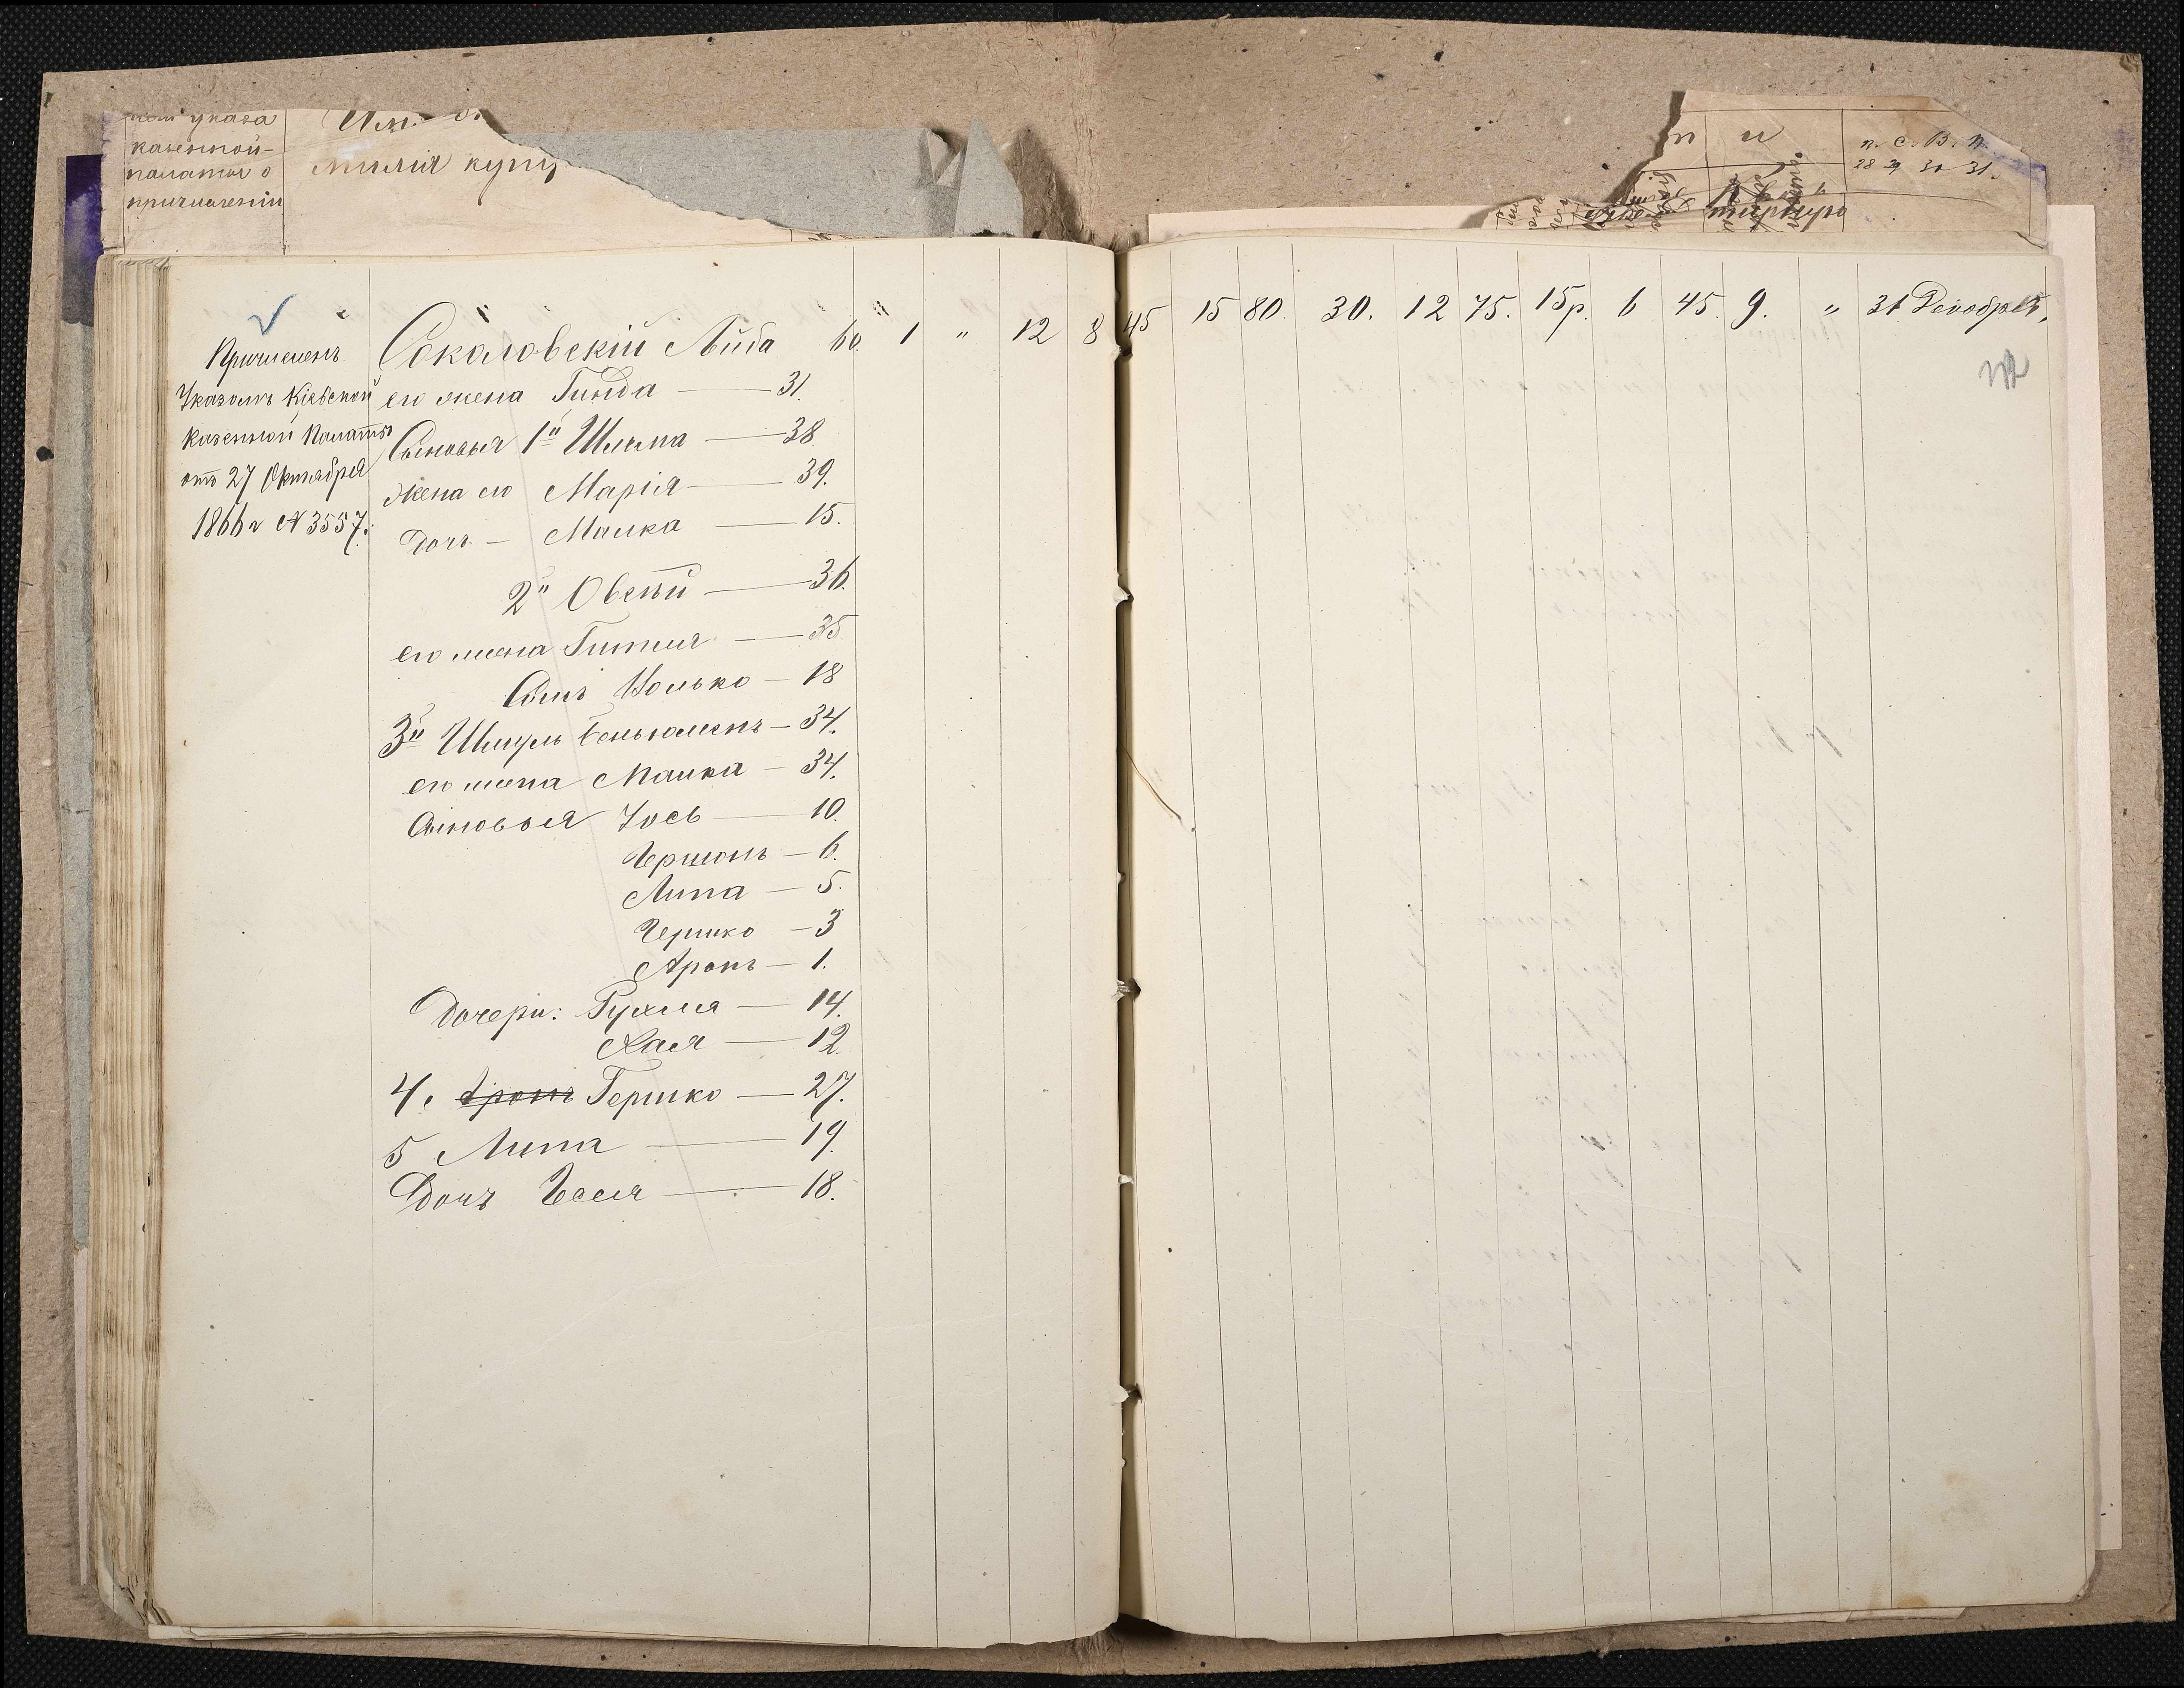 указа
казенной
палаты о
причислении
милія купц
п и
п. с. в. п.
28 29 30 31.
Причисленъ
Указомъ Кіевской
Казенной Палаты
отъ 27 Октября
1866 г № 3557.
Соколовскій Лейба 60. 1 " 12 8 45 15 80 30. 12 75. 15р. 6 45. 9. " 31 Декабря,
его жена Гинда — 31.
Сыновья 1й Шлема — 38
жена его Марія — 39.
дочь — Малка — 15.
2й Овсей — 36.
его жена Гитля — 35
Сынъ Волько — 18
3й Шмуль Беньюменъ — 34.
его жена Малка — 34.
Сыновья Іось — 10.
Гершонъ — 6.
Липа — 5.
Гершко — 3
Аронъ — 1.
Дочери: Рухля — 14.
Хая — 12.
4. Аронъ Гершко — 27.
5 Липа — 19.
Дочь Геся — 18.